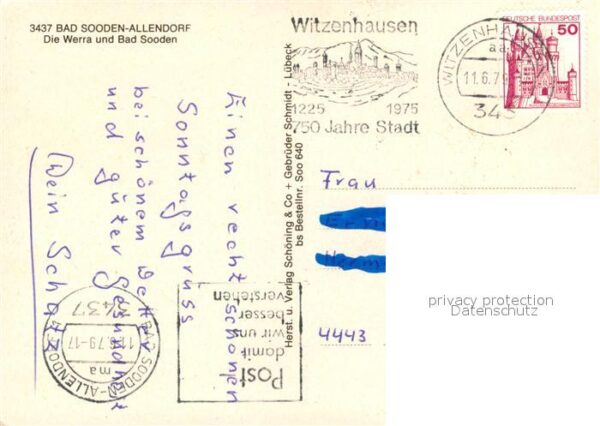 3437 BAD SOODEN-ALLENDORF
Die Werra und Bad Sooden
Witzenhausen
1225 1975
750 Jahre Stadt
WITZENHAUSEN
aa
11.6.79
343
DEUTSCHE BUNDESPOST
50
Einen recht schönen
Sonntagsgruss
bei schönem Wetter
und guter Gesundheit
Dein Schatz
Herst. u. Verlag Schöning & Co + Gebrüder Schmidt - Lübeck
bs Bestellnr. Soo 640
Frau
4443
Post
damit
wir uns
besser
verstehen
3437 BAD SOODEN-ALLENDORF
.6.79-17
ma
privacy protection
Datenschutz